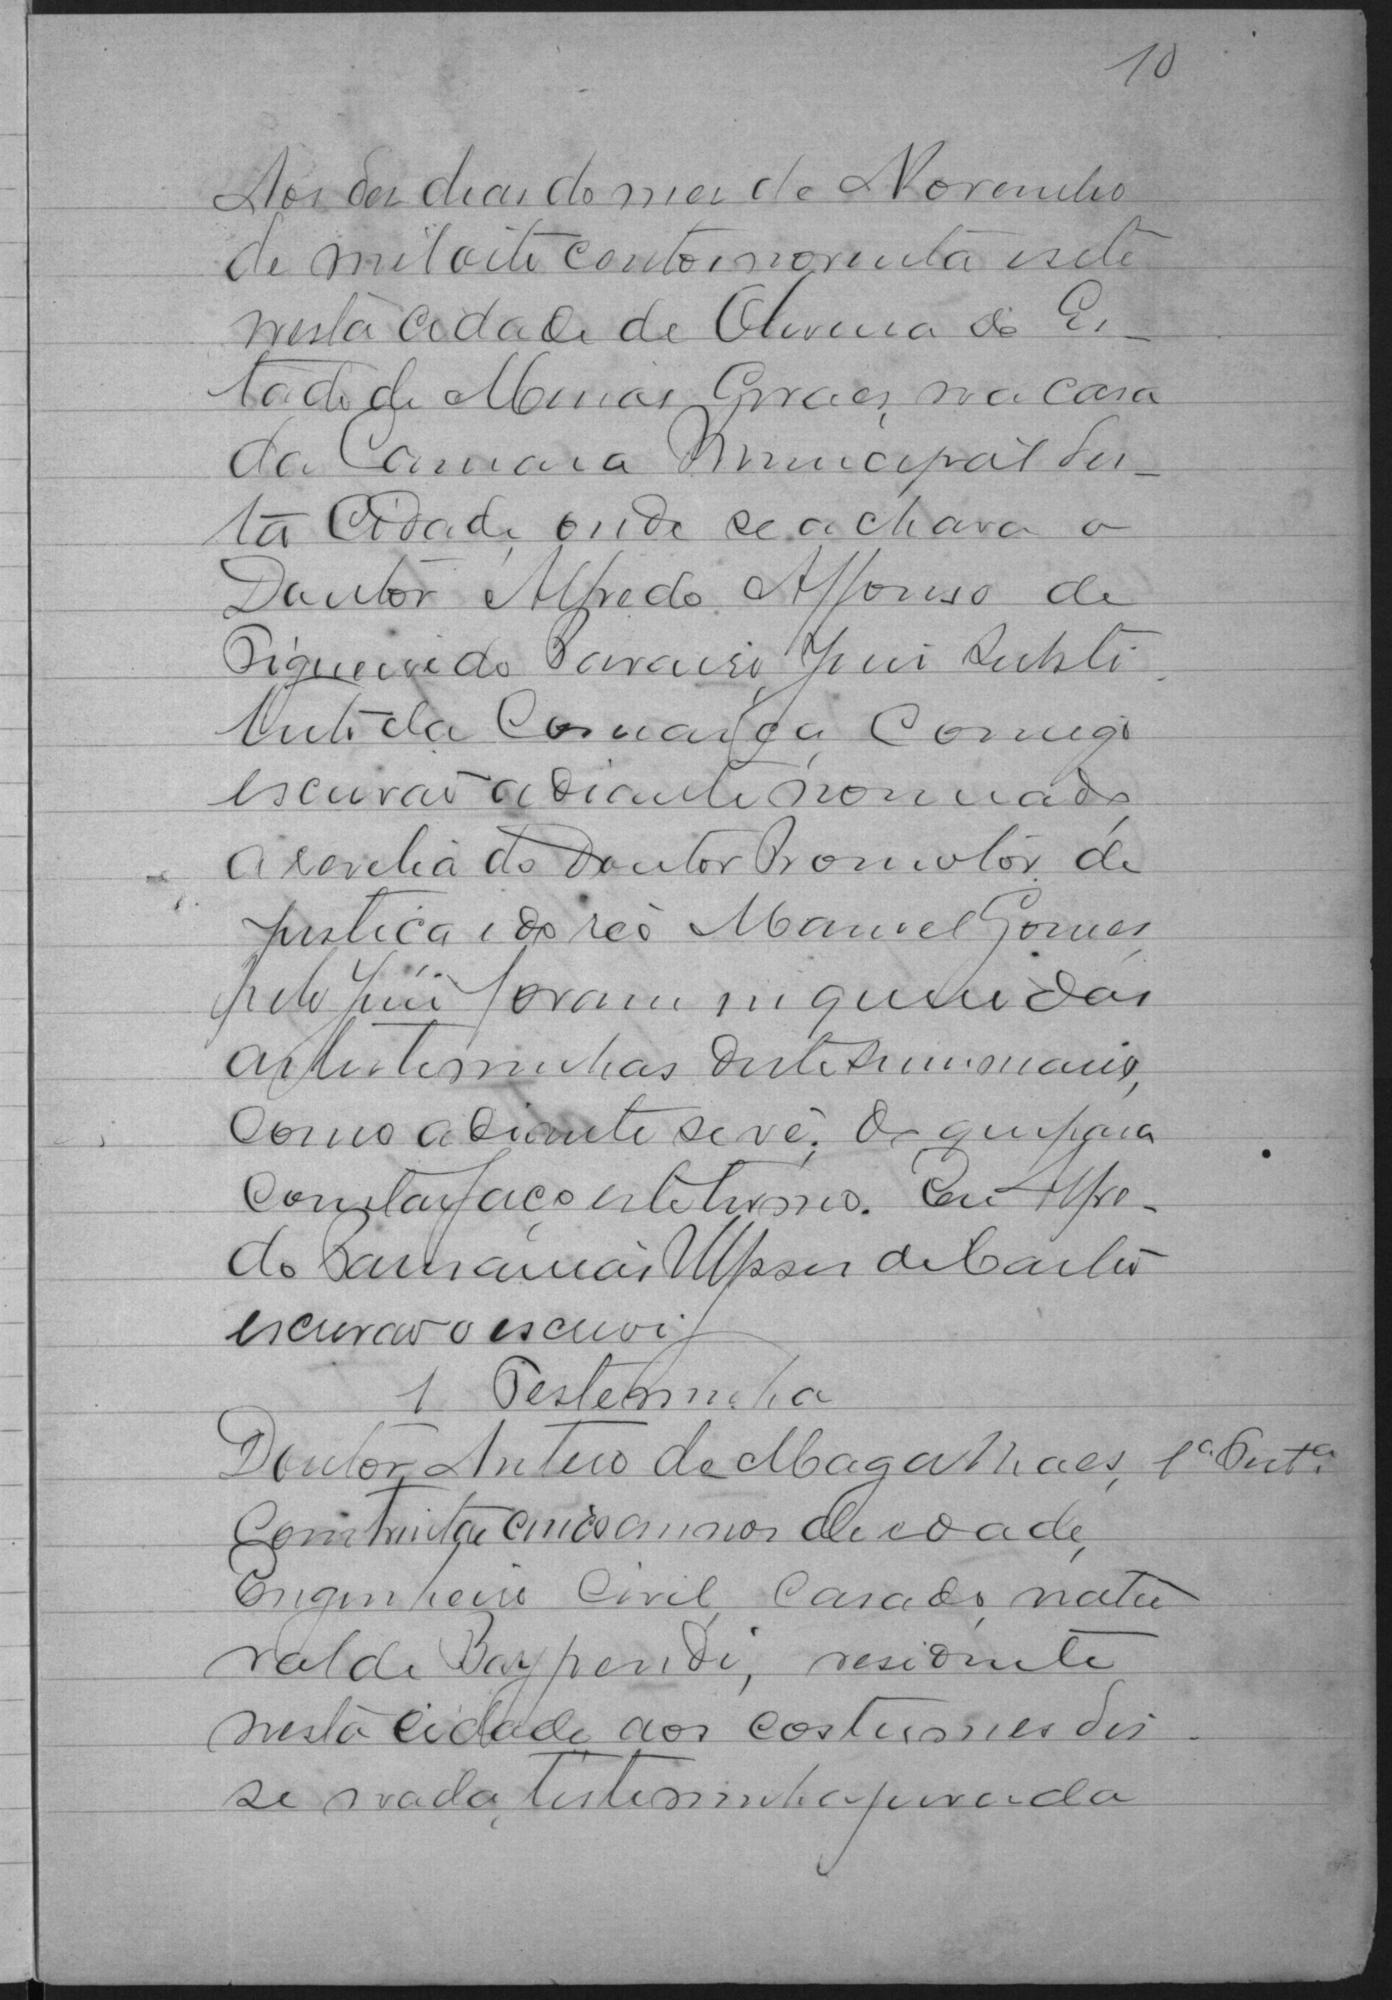 10
Aos des dias do mes de Novembro
de mil oito centos e noventa e sete
nesta Cidade de Oliveira do Es-
tado de Minas Geraes, na casa
da Camara Municipal des-
ta Cidade, onde se achava o
Doutor Alfredo Affonso de
Figueiredo Paraiso, Juiz Substi-
tuto da Comarca, Comigo
escrivão adiante nomeado,
a revelia do Doutor Promotor de
justiça e do réo Manoel Gomes,
pelo Juiz foram inqueridas
as testeminhas deste summario,
como adiante se vê; do que para
constar faço este termo. Eu Alfre-
do Ulysses de Castro
escrivão o escrevi
1 Testeminha
Doutor Antero de Magalhaes, 1ª Testª
com trinta e cinco annos de edade,
Engenheiro Civil, Casado, natu
ral de Baypendi, residente
nesta cidade, aos costumes dis-
se nada, testeminha jurada